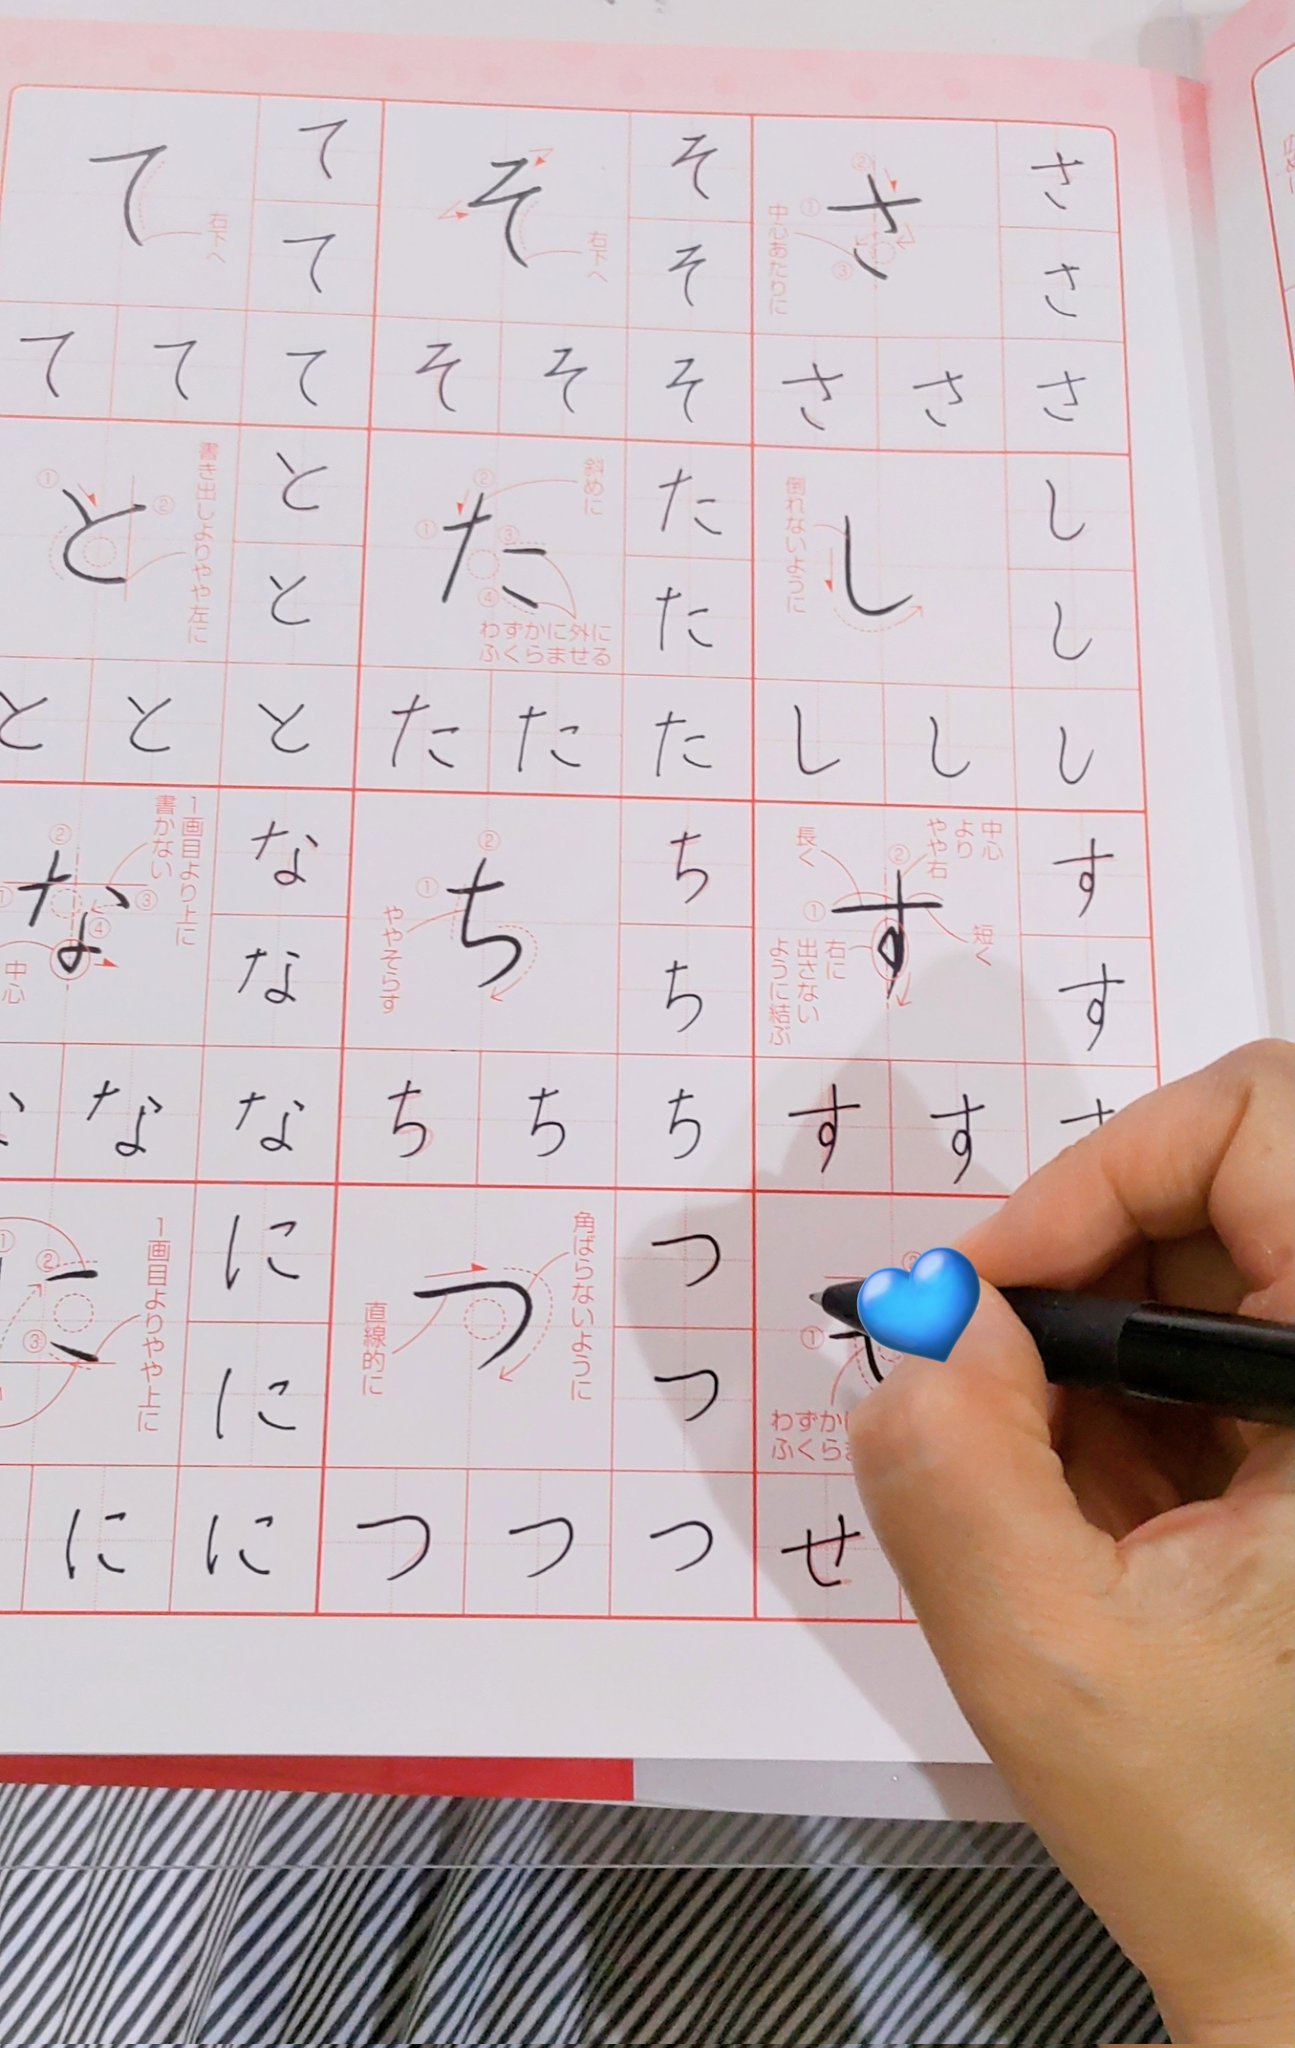 さ
さ
さ
さ
さ
さ
① ② ③
中心あたりに
し
し
し
し
し
し
倒れないように
す
す
す
す
す
① ②
中心
より
やや右
短く
長く
右に
出さない
ように結ぶ
①
せ
そ
そ
そ
そ
そ
そ
右下へ
た
た
た
た
た
た
① ② ③ ④
斜めに
わずかに外に
ふくらませる
ち
ち
ち
ち
ち
ち
① ②
ややそらす
つ
つ
つ
つ
つ
つ
角ばらないように
直線的に
て
て
て
て
て
て
右下へ
と
と
と
と
と
と
① ②
書き出しよりやや左に
な
な
な
な
な
② ③ ④
1画目より上に
書かない
中心
に
に
に
に
② ③
1画目よりやや上に